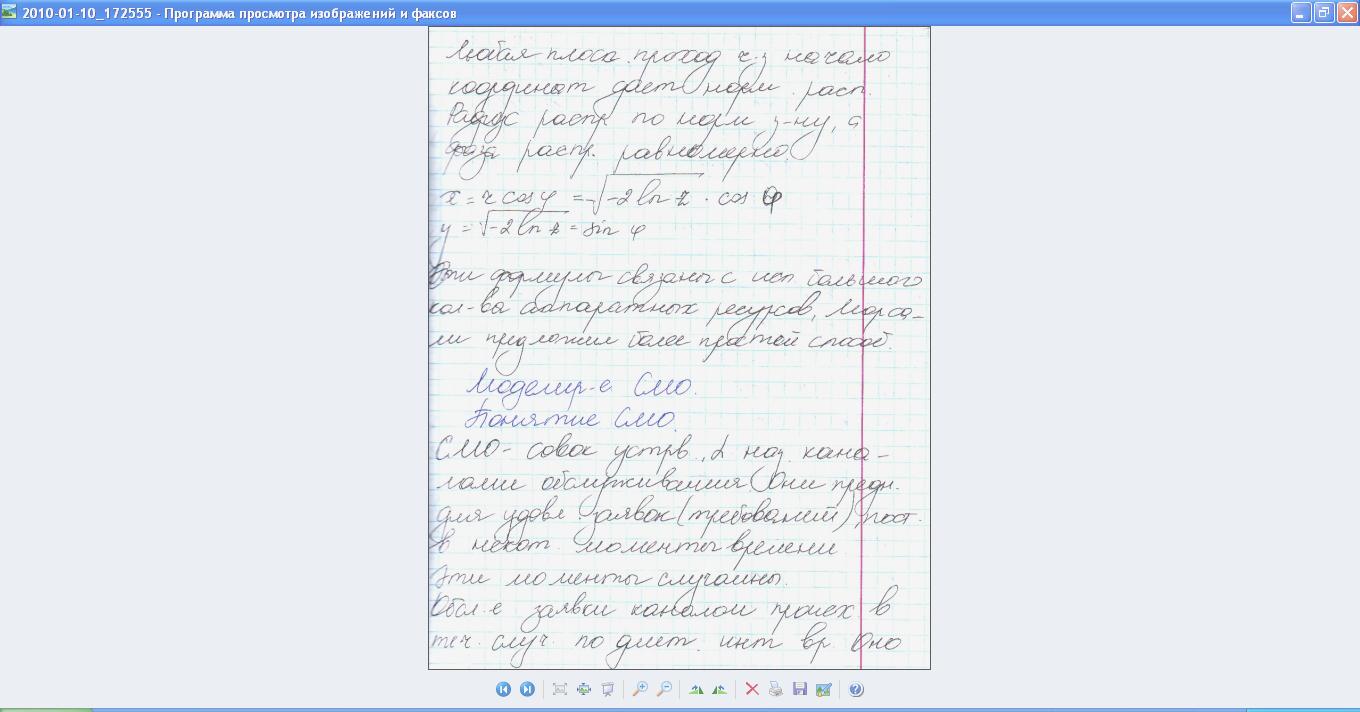 2010-01-10_172555 - Программа просмотра изображений и факсов
Любая плоск. проход ч-з начало
координат дает норм. расп.
Радиус распр по норм з-ну, а
фаза распр. равномерно.
x = r cos φ = √-2 ln z · cos φ
y = √-2 ln z = sin φ
Эти формулы связаны с исп большого
кол-ва аппаратных ресурсов, Марса-
ли предложил более простой способ.
Моделир-е СМО.
Понятие СМО.
СМО - совок устрв, наз. кана-
лами обслуживания. Они предн.
для удовл. заявок (требований), пост.
в некот. моменты времени
Эти моменты случайны.
Обсл-е заявки каналом происх в
теч. случ. по длит. инт вр. Оно